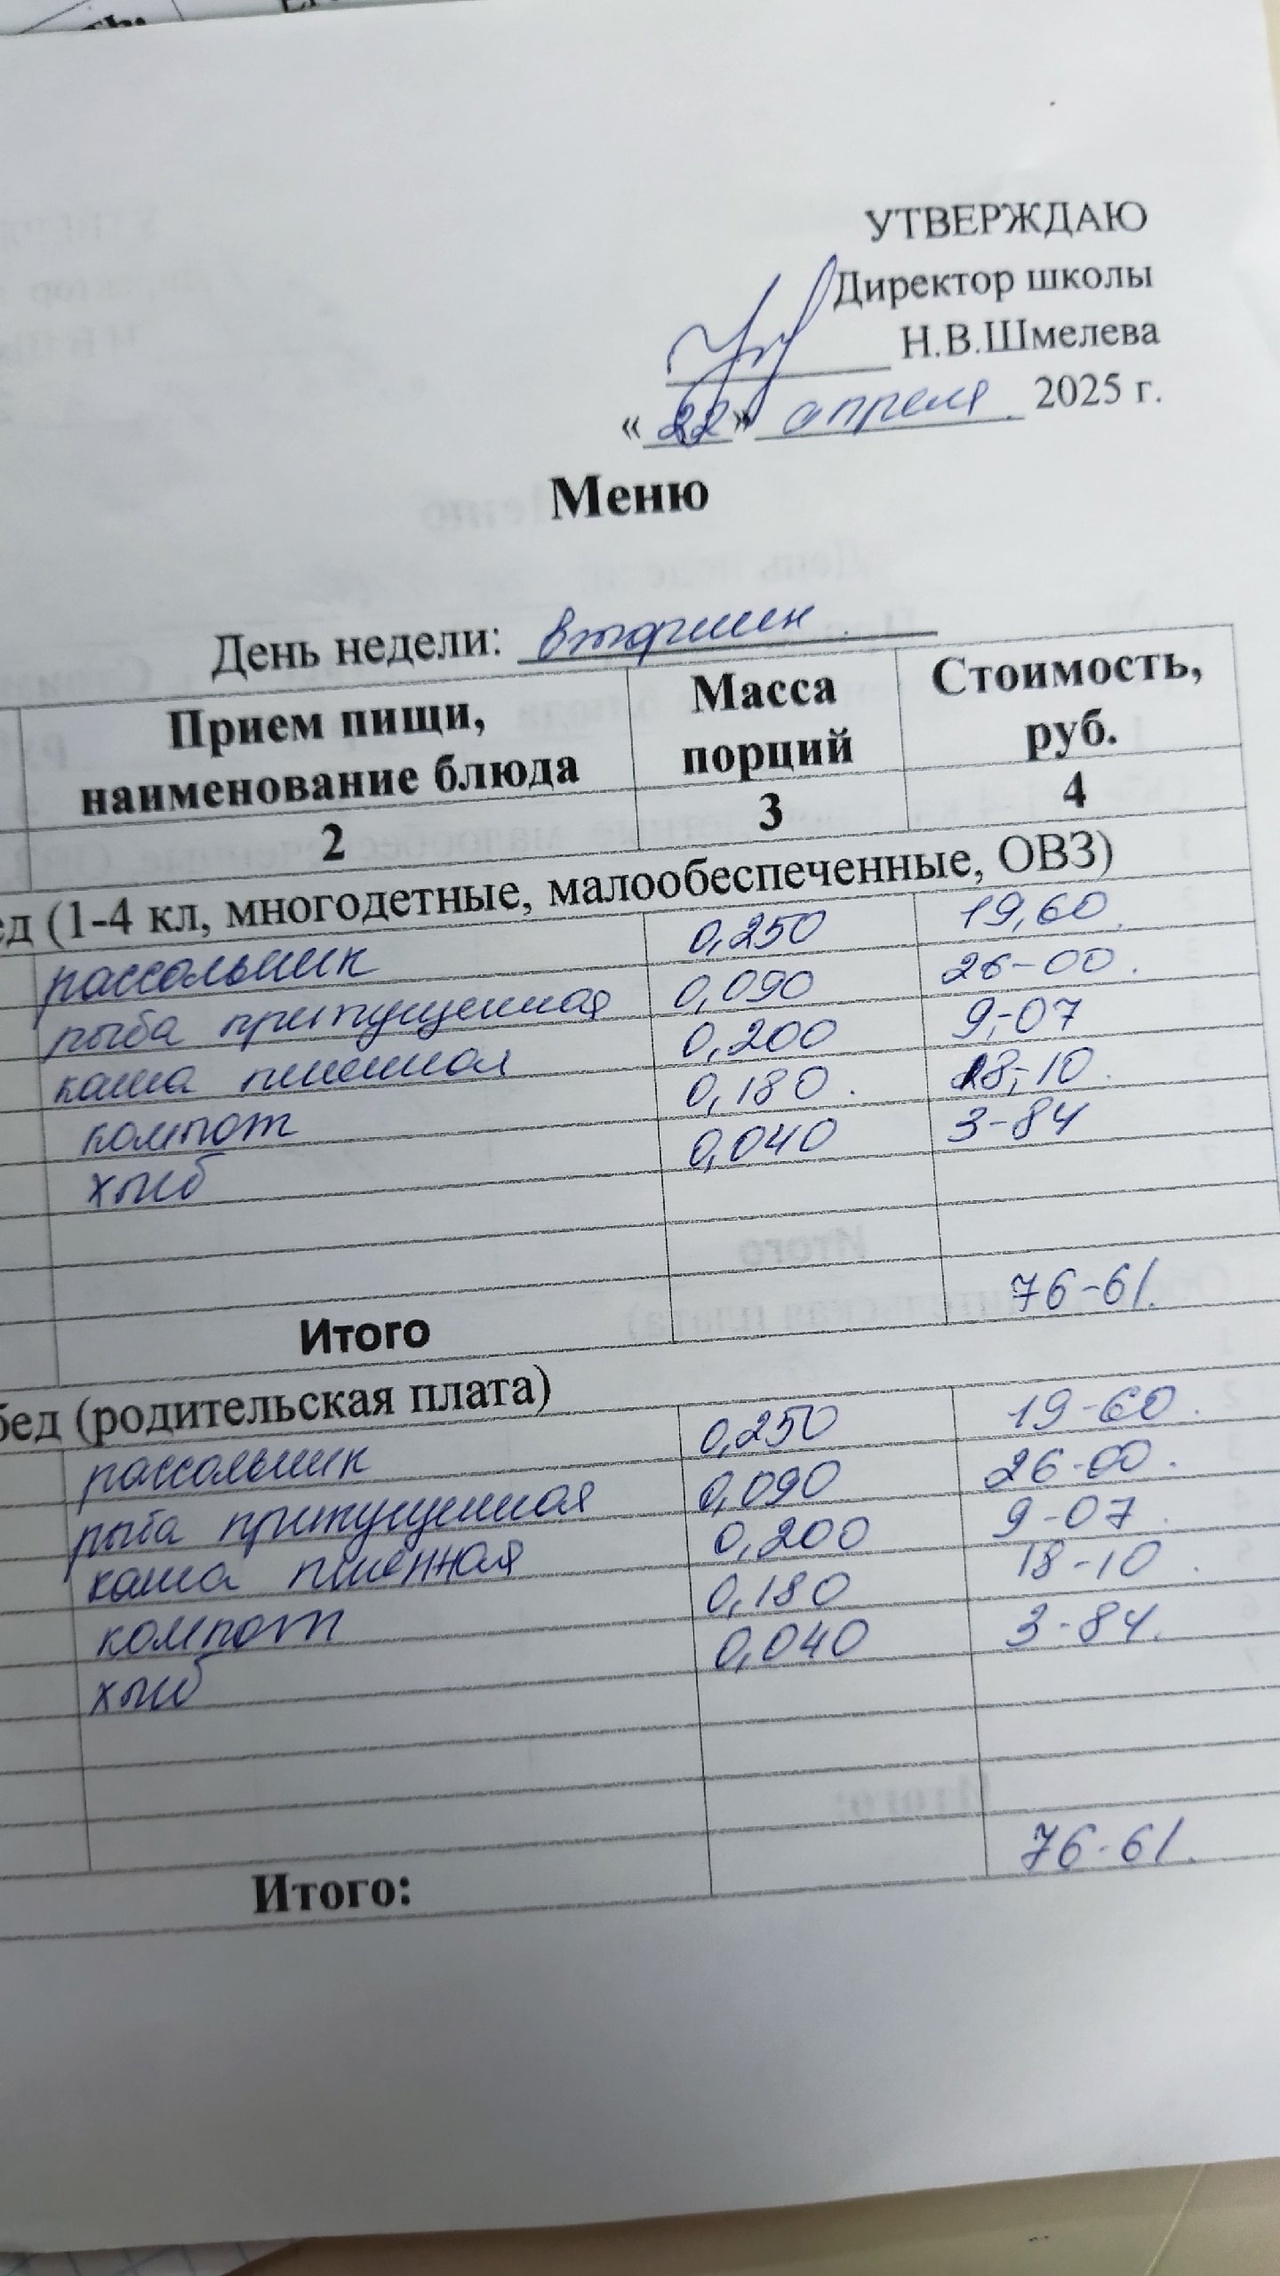 УТВЕРЖДАЮ
Директор школы
Н.В.Шмелева
«22» апреля 2025 г.
Меню
День недели: вторник
Прием пищи, наименование блюда Масса порций Стоимость, руб.
2 3 4
ед (1-4 кл, многодетные, малообеспеченные, ОВЗ)
рассольник 0,250 19,60
рыба припущенная 0,090 26-00
каша пшенная 0,200 9-07
компот 0,180 18-10
хлеб 0,040 3-84
Итого 76-61
бед (родительская плата)
рассольник 0,250 19-60
рыба припущенная 0,090 26-00
каша пшенная 0,200 9-07
компот 0,180 18-10
хлеб 0,040 3-84
Итого: 76-61